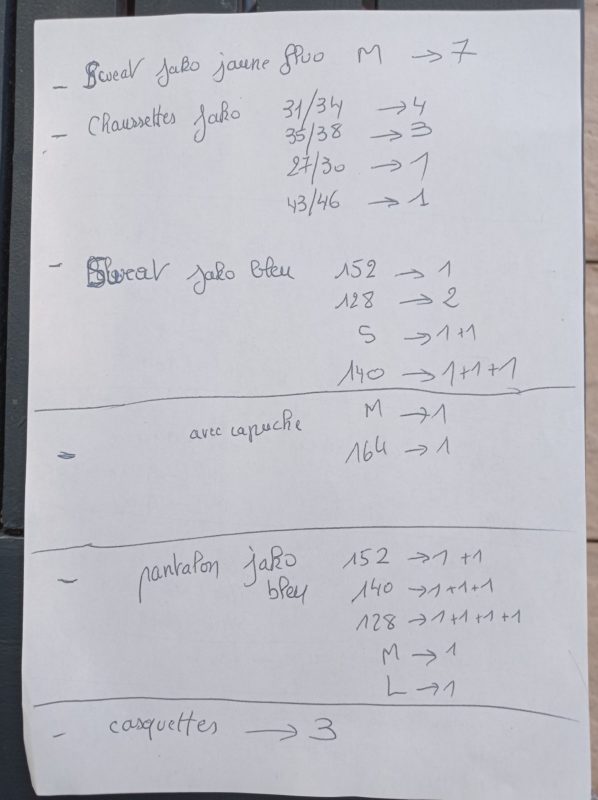 - Sweat Jako jaune fluo M → 7
- Chaussettes Jako 31/34 → 4
35/38 → 3
27/30 → 1
43/46 → 1
- Sweat jako bleu 152 → 1
128 → 2
S → 1+1
140 → 1+1+1
- avec capuche M → 1
164 → 1
- pantalon jako 152 → 1+1
bleu 140 → 1+1+1
128 → 1+1+1+1
M → 1
L → 1
- casquettes → 3